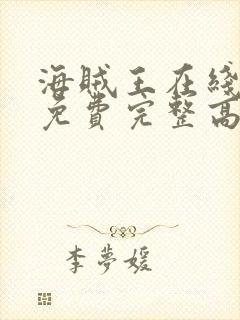 海贼王在綫
免費完整高
李夢媛